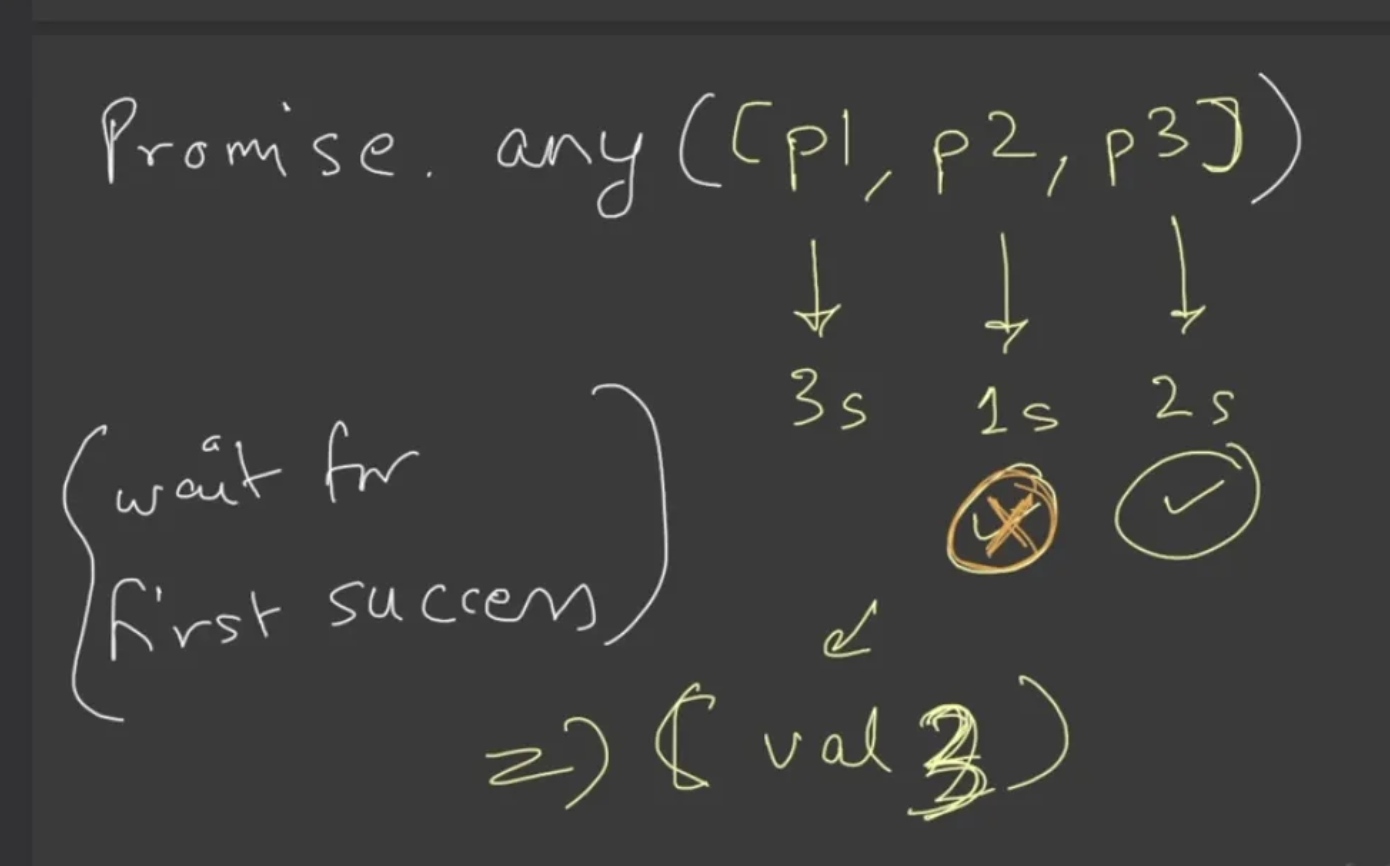 Promise. any([p1, p2, p3])
3s 1s 2s
wait for
first success
=> ( val 3 )